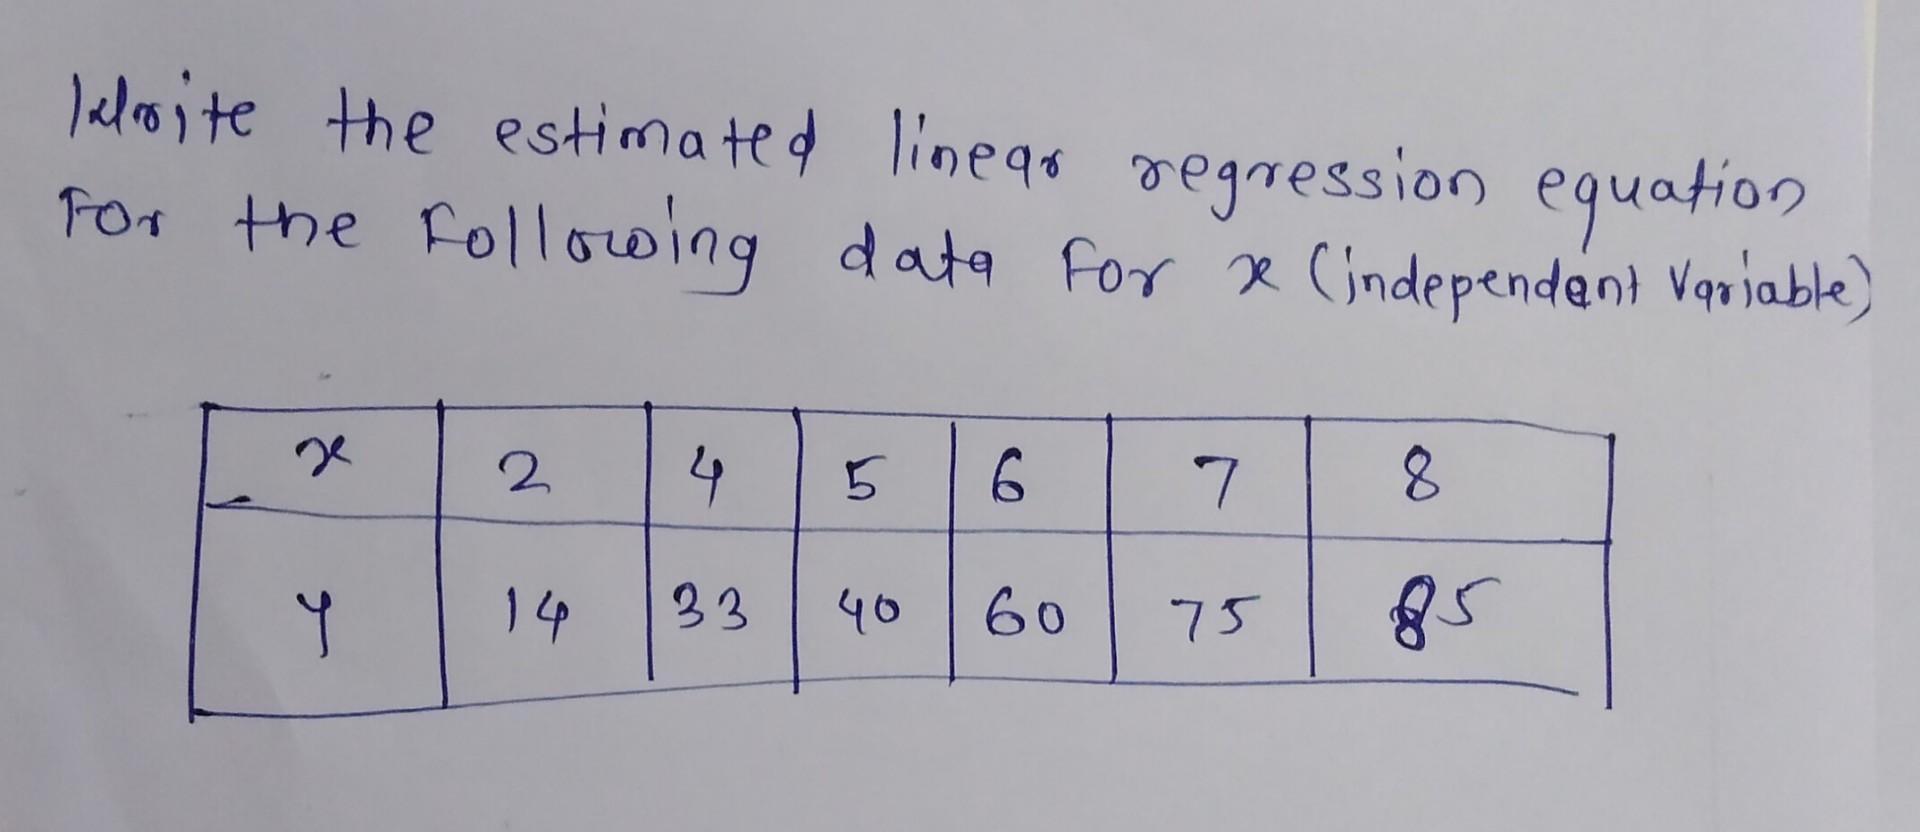 Write the estimated linear regression equation
For the Following data For x (independent Variable)
x 2 4 5 6 7 8
y 14 33 40 60 75 85